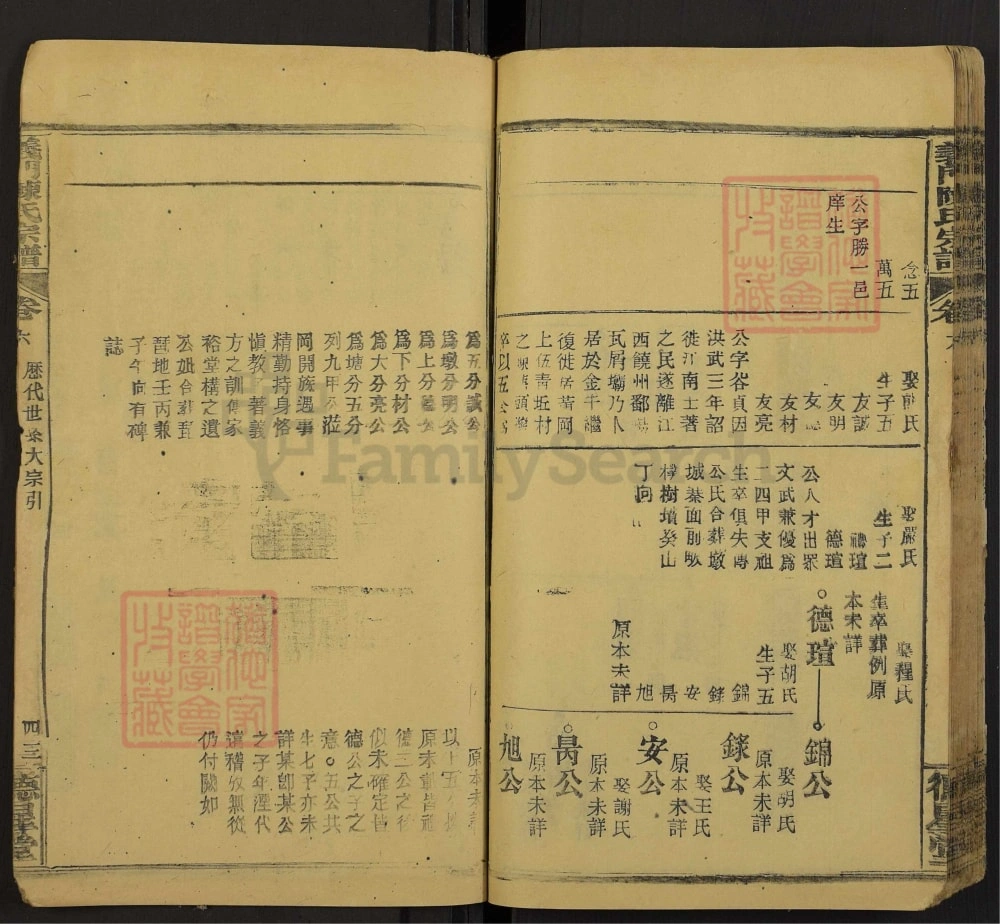 義門陳氏宗譜
卷六
念五
萬五
公字勝一邑
庠生
娶前氏
生子五
友誠
友明
友
友材
友亮
公字谷貞因
洪武三年詔
徙江南士著
之民遂離江
西饒州鄱
瓦屑壩乃卜
居於金牛繼
復徙居苦岡
上伍青坵村
卒以五公
娶嚴氏
生子二
禮瑄
德瑄
公人才出眾
文武兼優爲
二四甲支祖
生卒俱失傳
公氏合葬墩
城藜面前畈
樟樹墳癸山
丁向
娶程氏
生卒葬例原
本未詳
德瑄
娶胡氏
生子五
錦
錄
安
昺
旭
原本未詳
錦公
娶胡氏
原本未詳
錄公
娶王氏
原本未詳
安公
娶謝氏
原本未詳
昺公
原本未詳
旭公
爲五分誠公
爲墩分明公
爲上分
公
爲下分材公
爲大分亮公
爲塘分五分
列九甲公
岡開族遇事
精勤持身恪
愼教
著義
方之訓傳家
裕堂構之遺
公妣合葬
琶地壬丙兼
子午向有碑
誌
原本未
以上五
原本
皆
德三公之後
似未確定皆
德公之子之
意。五公共
生七子亦未
詳某卽某公
之子年湮代
遠稽攷無從
仍付闕如
義門陳氏宗譜
卷六
歷代世系大宗引
四三
FamilySearch